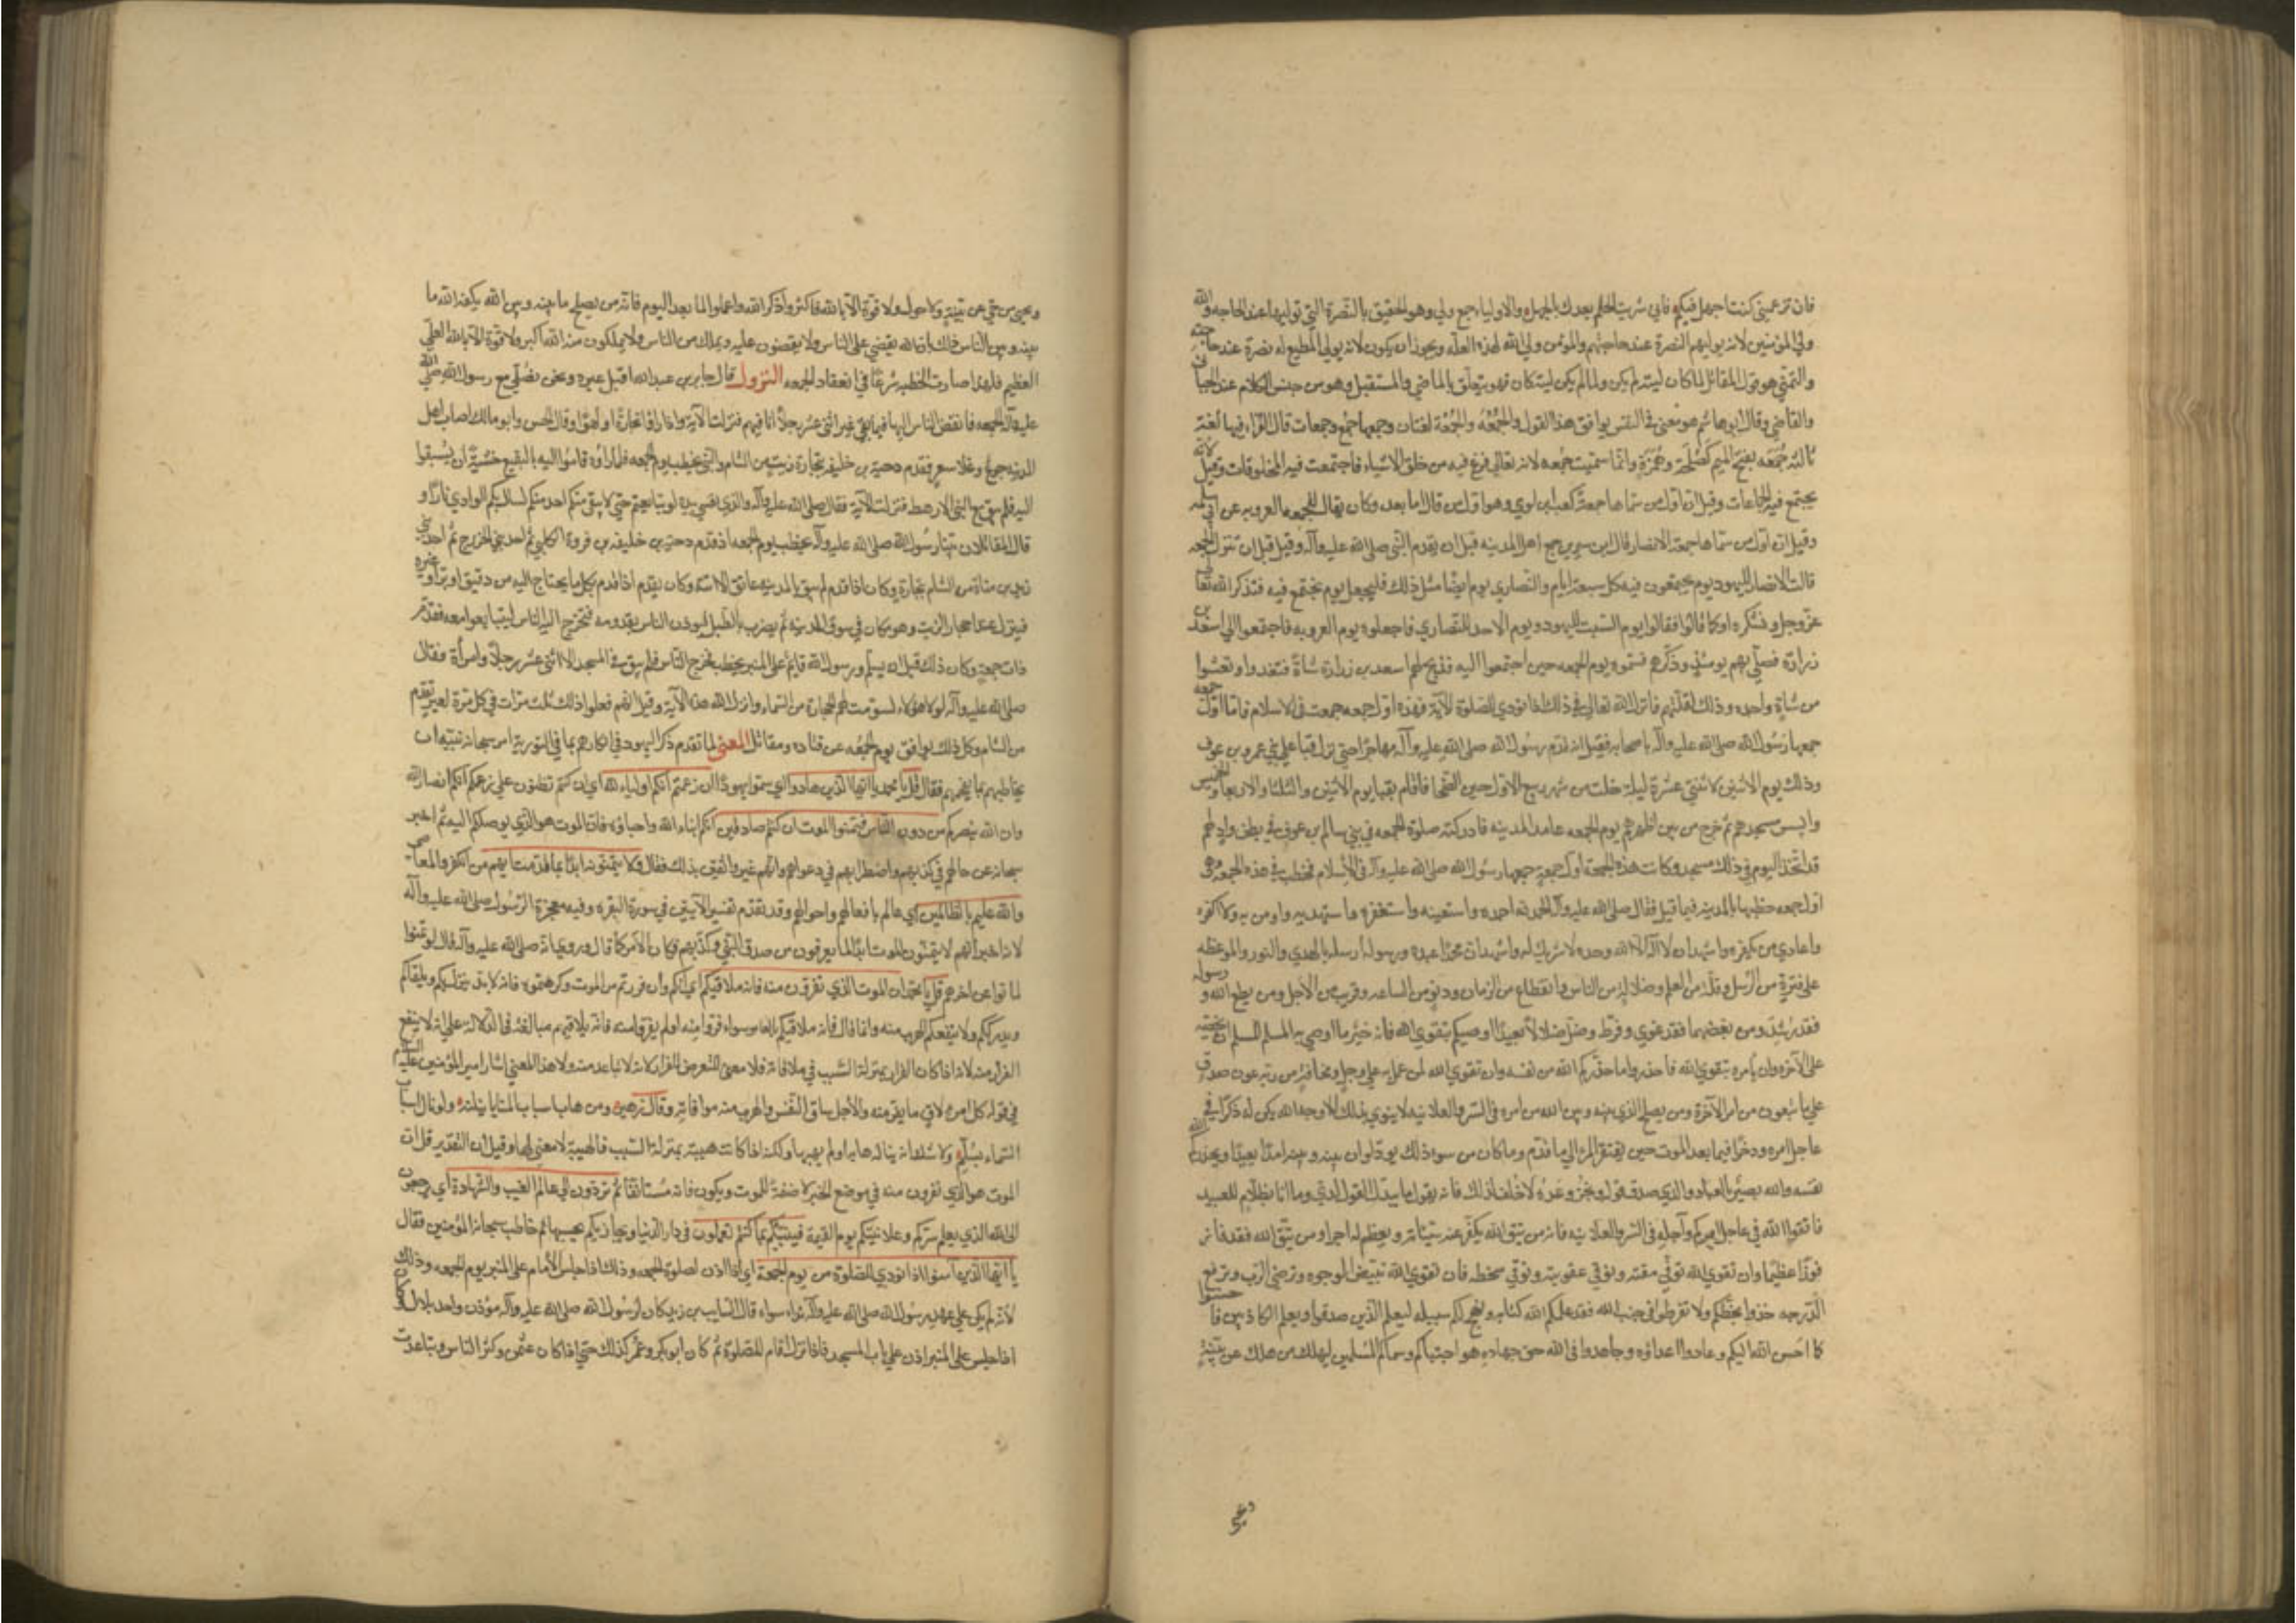 فان تزعميني كنت اجهل فيكم فاني شريت الحلم بعدك بالجهل والاولياء جمع ولي وهو الحقيق بالنصرة التي توليها عند الحاجه والله
ولي المؤمنين لانه يوليهم النصرة عند حاجتهم والمؤمن ولي الله لهذه العله ويجوز ان يكون لانه يولي المطيع له نصرة عند حاجته
والتمني هو قول القائل لما كان ليته لم يكن ولما لم يكن ليته كان فهو يتعلق بالماضي والمستقبل وهو من جنس الكلام عند الجبائي
والقاضي وقال ابو هاشم هو معنى في النفس يوافق هذا القول والجُمُعَه والجُمْعَة لغتان وجمعها جمع وجمعات قال الفراء فيها لغة
ثالثة جُمَعَه بفتح الميم كضُحَكَة وهُمَزَة وانما سميت جمعه لانه تعالي فرغ فيه من خلق الاشياء فاجتمعت فيه المخلوقات وقيل لانه
يجتمع فيه الجماعات وقيل ان اول من سماها جمعة كعب بن لوي وهو اول من قال اما بعد وكان يقال للجمعه العروبه عن ابي سلمه
وقيل ان اول من سماها جمعة الانصار قال ابن سيرين جمع اهل المدينه قبل ان يقدم النبي صلى الله عليه وآله وقيل قبل ان تنزل الجمعه
قالت الانصار لليهود يوم يجتمعون فيه كل سبعة ايام والنصاري يوم ايضا مثل ذلك فليجعل يوم نجتمع فيه فنذكر الله تعالي
عز وجل ونشكره او كما قالوا فقالوا يوم السبت لليهود ويوم الاحد للنصاري فاجعلوه يوم العروبه فاجتمعوا الي اسعد بن
زرارة فصلي بهم يومئذ وذكرهم فسموه يوم الجمعه حين اجتمعوا اليه فذبح لهم اسعد بن زرارة شاة فتغدوا وتعشوا
من شاة واحده وذلك لقلتهم فانزل الله تعالي في ذلك اذا نودي للصلوة الآية فهذه اول جمعه جمعت في الاسلام فاما اول جمعه
جمعها رسول الله صلى الله عليه وآله باصحابه فقيل انه قدم رسول الله صلى الله عليه وآله مهاجرا حتي نزل قبا علي بني عمرو بن عوف
وذلك يوم الاثنين لاثنتي عشرة ليلة خلت من شهر ربيع الاول حين الضحي فاقام بقبا يوم الاثنين والثلثا والاربعا والخميس
واسس مسجدهم ثم خرج من بين اظهرهم يوم الجمعه عامدا المدينه فادركته صلوة الجمعه في بني سالم بن عوف في بطن واد لهم
قد اتخذ اليوم في ذلك مسجد وكانت هذه الجمعة اول جمعة جمعها رسول الله صلى الله عليه وآله في الاسلام فخطب في هذه الجمعه وهي
اول جمعه خطبها بالمدينه فيما قيل فقال صلى الله عليه وآله الحمد لله احمده واستعينه واستغفره واستهديه واومن به ولا اكفره
واعادي من يكفره واشهد ان لا اله الا الله وحده لا شريك له واشهد ان محمدا عبده ورسوله ارسله بالهدي والنور والموعظه
علي فترة من الرسل وقلة من العلم وضلالة من الناس وانقطاع من الزمان ودنو من الساعه وقرب من الاجل ومن يطع الله ورسوله
فقد رشد ومن يعصهما فقد غوي وفرط وضل ضلالا بعيدا اوصيكم بتقوي الله فانه خير ما اوصي به المسلم المسلم ان يحضه
علي الآخره وان يامره بتقوي الله فاحذروا ما حذركم الله من نفسه وان تقوي الله لمن عمل به علي وجل ومخافة من ربه عون صدق
علي ما تبغون من امر الآخرة ومن يصلح الذي بينه وبين الله من امره في السر والعلانيه لا ينوي بذلك الا وجه الله يكن له ذكرا في
عاجل امره وذخرا فيما بعد الموت حين يفتقر المرء الي ما قدم وما كان من سوء ذلك يود لو ان بينه وبينه امدا بعيدا ويحذركم الله
نفسه والله بصير بالعباد والذي صدق قوله ونجز وعده لا خلف لذلك فانه يقول ما يبدل القول لدي وما انا بظلام للعبيد
فاتقوا الله في عاجل امركم وآجله في السر والعلانيه فانه من يتق الله يكفر عنه سيئاته ويعظم له اجرا ومن يتق الله فقد فاز
فوزا عظيما وان تقوي الله توقي مقته وتوقي عقوبته وتوقي سخطه فان تقوي الله تبيض الوجوه وترضي الرب وترفع
الدرجه خذوا بحظكم ولا تفرطوا في جنب الله فقد علمكم الله كتابه ونهج لكم سبيله ليعلم الذين صدقوا ويعلم الكاذبين فاحسنوا
كما احسن الله اليكم وعادوا اعداؤه وجاهدوا في الله حق جهاده هو اجتباكم وسماكم المسلمين ليهلك من هلك عن بينة
ويحيى
ويحيى من حي عن بينة ولا حول ولا قوة الا بالله فاكثروا ذكر الله واعملوا لما بعد اليوم فانه من يصلح ما بينه وبين الله يكفه الله ما
بينه وبين الناس ذلك بان الله يقضي على الناس ولا يقضون عليه ويملك من الناس ولا يملكون منه الله اكبر ولا قوة الا بالله العلي
العظيم فلهذا صارت الخطبه شرطا في انعقاد الجمعه النزول قال جابر بن عبدالله اقبل عير ونحن نصلي مع رسول الله صلى الله
عليه وآله الجمعه فانفض الناس اليها فما بقي غير اثني عشر رجلا انا فيهم فنزلت الآية واذا راوا تجارة او لهوا وقال الحسن وابو مالك اصاب اهل
المدينه جوع وغلا سعر فقدم دحية بن خليفه بتجارة زيت من الشام والنبي يخطب يوم الجمعه فلما راوه قاموا اليه بالبقيع خشية ان يسبقوا
اليه فلم يبق مع النبي الا رهط فنزلت الآية فقال صلى الله عليه وآله والذي نفسي بيده لو تتابعتم حتي لا يبقي منكم احد منكم لسال بكم الوادي نارا و
قال المقاتلان بينا رسول الله صلى الله عليه وآله يخطب يوم الجمعه اذ قدم دحية بن خليفه بن فروة الكلبي ثم احد بني الخزرج ثم احد بني
زيد بن مناة من الشام بتجارة وكان اذا قدم لم يبق بالمدينه عاتق الا اتته وكان يقدم اذا قدم بكل ما يحتاج اليه من دقيق او بر او غيره
فينزل عند احجار الزيت وهو مكان في سوق المدينه ثم يضرب بالطبل ليوذن الناس بقدومه فيخرج اليه الناس ليتبايعوا معه فقدم
ذات جمعة وكان ذلك قبل ان يسلم ورسول الله قايم على المنبر يخطب فخرج الناس فلم يبق في المسجد الا اثني عشر رجلا وامرأة فقال
صلى الله عليه وآله لولا هؤلاء لسومت لهم الحجارة من السماء وانزل الله هذه الآية وقيل انهم فعلوا ذلك ثلث مرات في كل مرة لعير تقدم
من الشام وكل ذلك يوافق يوم الجمعه عن قتاده ومقاتل المعني لما تقدم ذكر اليهود في انكارهم بما في التورية امر سبحانه نبيه ان
يخاطبهم بما يفحمهم فقال قل يا محمد يا ايها الذين هادوا اي سموا يهودا ان زعمتم انكم اولياء لله اي ان كنتم تظنون علي زعمكم انكم انصار الله
وان الله ينصركم من دون الناس فتمنوا الموت ان كنتم صادقين انكم ابناء الله واحباؤه فان الموت هو الذي يوصلكم اليه ثم اخبر
سبحانه عن حالهم في كذبهم واضطرابهم في دعواهم وانهم غير واثقين بذلك فقال ولا يتمنونه ابدا بما قدمت ايديهم من الكفر والمعاصي
والله عليم بالظالمين اي عالم بافعالهم واحوالهم وقد تقدم تفسير الآيتين في سورة البقره وفيه معجزة الرسول صلى الله عليه وآله
لانه اخبر انهم لا يتمنون الموت ابدا لما يعرفون من صدق النبي وكذبهم فكان الامر كما قال وروي انه صلى الله عليه وآله قال لو تمنوا
لماتوا عن اخرهم قل يا محمد ان الموت الذي تفرون منه فانه ملاقيكم اي انكم وان فررتم من الموت وكرهتموه فانه لا بد ينزل بكم ويلقاكم
ويدرككم ولا ينفعكم الهرب منه وانما قال فانه ملاقيكم بالفا سواء فروا منه او لم يفروا منه فانه يلاقيهم مبالغة في الدلالة علي انه لا ينفع
الفرار منه لانه اذا كان الفرار بمنزلة السبب في ملاقاته فلا معني للتعرض للفرار لانه لا يباعد منه ولا هذا المعني اشار امير المؤمنين عليه السلام
في قوله كل امرء لاق ما يفر منه والاجل مساق النفس والهرب منه موافاته وقال زهير ومن هاب اسباب المنايا ينلنه ولو نال اسباب
السماء بسلم ولا شك انه يناله هابه او لم يهبه ولكنه اذا كانت هيبته بمنزلة السبب فالهيبة لا معني لها وقيل ان التقدير قل ان
الموت هو الذي تفرون منه في موضع الخبر لا صفة للموت ويكون فانه مستانفا ثم تردون الي عالم الغيب والشهادة اي ترجعون
الى الله الذي يعلم سركم وعلانيتكم يوم القيمة فينبئكم بما كنتم تعملون في دار الدنيا ويجازيكم بحسبها ثم خاطب سبحانه المؤمنين فقال
يا ايها الذين آمنوا اذا نودي للصلوة من يوم الجمعة اي اذا اذن لصلوة الجمعه وذلك اذا جلس الامام على المنبر يوم الجمعه وذلك
لانه لم يكن علي عهد رسول الله صلى الله عليه وآله نداء سواه قال السايب بن زيد كان لرسول الله صلى الله عليه وآله مؤذن واحد بلال فكان
اذا جلس على المنبر اذن علي باب المسجد فاذا نزل اقام للصلوة ثم كان ابو بكر وعمر كذلك حتي اذا كان عثمن وكثر الناس وتباعدت